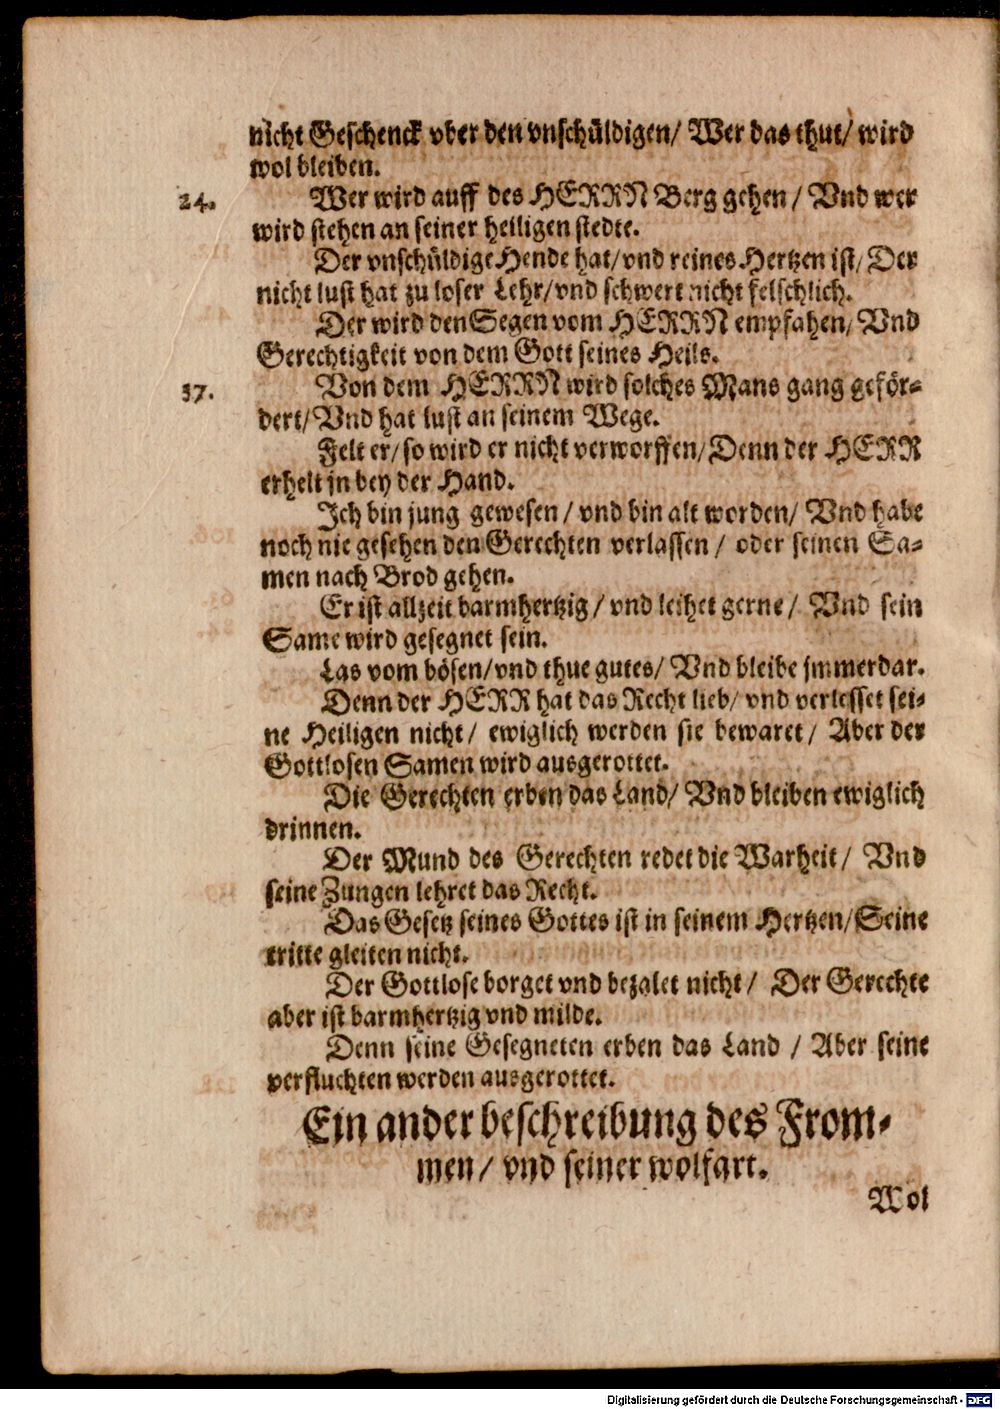 nicht Geschenck vber den vnschüldigen/ Wer das thut/ wird
wol bleiben.
24. Wer wird auff des HERRN Berg gehen/ Vnd wer
wird stehen an seiner heiligen stedte.
Der vnschüldige Hende hat/ vnd reines Hertzen ist/ Der
nicht lust hat zu loser Lehr/ vnd schwert nicht felschlich.
Der wird den Segen vom HERRN empfahen/ Vnd
Gerechtigkeit von dem Gott seines Heils.
37. Von dem HERRN wird solches Mans gang geför-
dert/ Vnd hat lust an seinem Wege.
Felt er/ so wird er nicht verworffen/ Denn der HERR
erhelt jn bey der Hand.
Ich bin jung gewesen/ vnd bin alt worden/ Vnd habe
noch nie gesehen den Gerechten verlassen/ oder seinen Sa-
men nach Brod gehen.
Er ist allzeit barmhertzig/ vnd leihet gerne/ Vnd sein
Same wird gesegnet sein.
Las vom bösen/ vnd thue gutes/ Vnd bleibe jmmerdar.
Denn der HERR hat das Recht lieb/ vnd verlesset sei-
ne Heiligen nicht/ ewiglich werden sie bewaret/ Aber der
Gottlosen Samen wird ausgerottet.
Die Gerechten erben das Land/ Vnd bleiben ewiglich
drinnen.
Der Mund des Gerechten redet die Warheit/ Vnd
seine Zungen lehret das Recht.
Das Gesetz seines Gottes ist in seinem Hertzen/ Seine
tritte gleiten nicht.
Der Gottlose borget vnd bezalet nicht/ Der Gerechte
aber ist barmhertzig vnd milde.
Denn seine Gesegneten erben das Land/ Aber seine
verfluchten werden ausgerottet.
Ein ander beschreibung des From-
men/ vnd seiner wolfart.
Wol
Digitalisierung gefördert durch die Deutsche Forschungsgemeinschaft - DFG